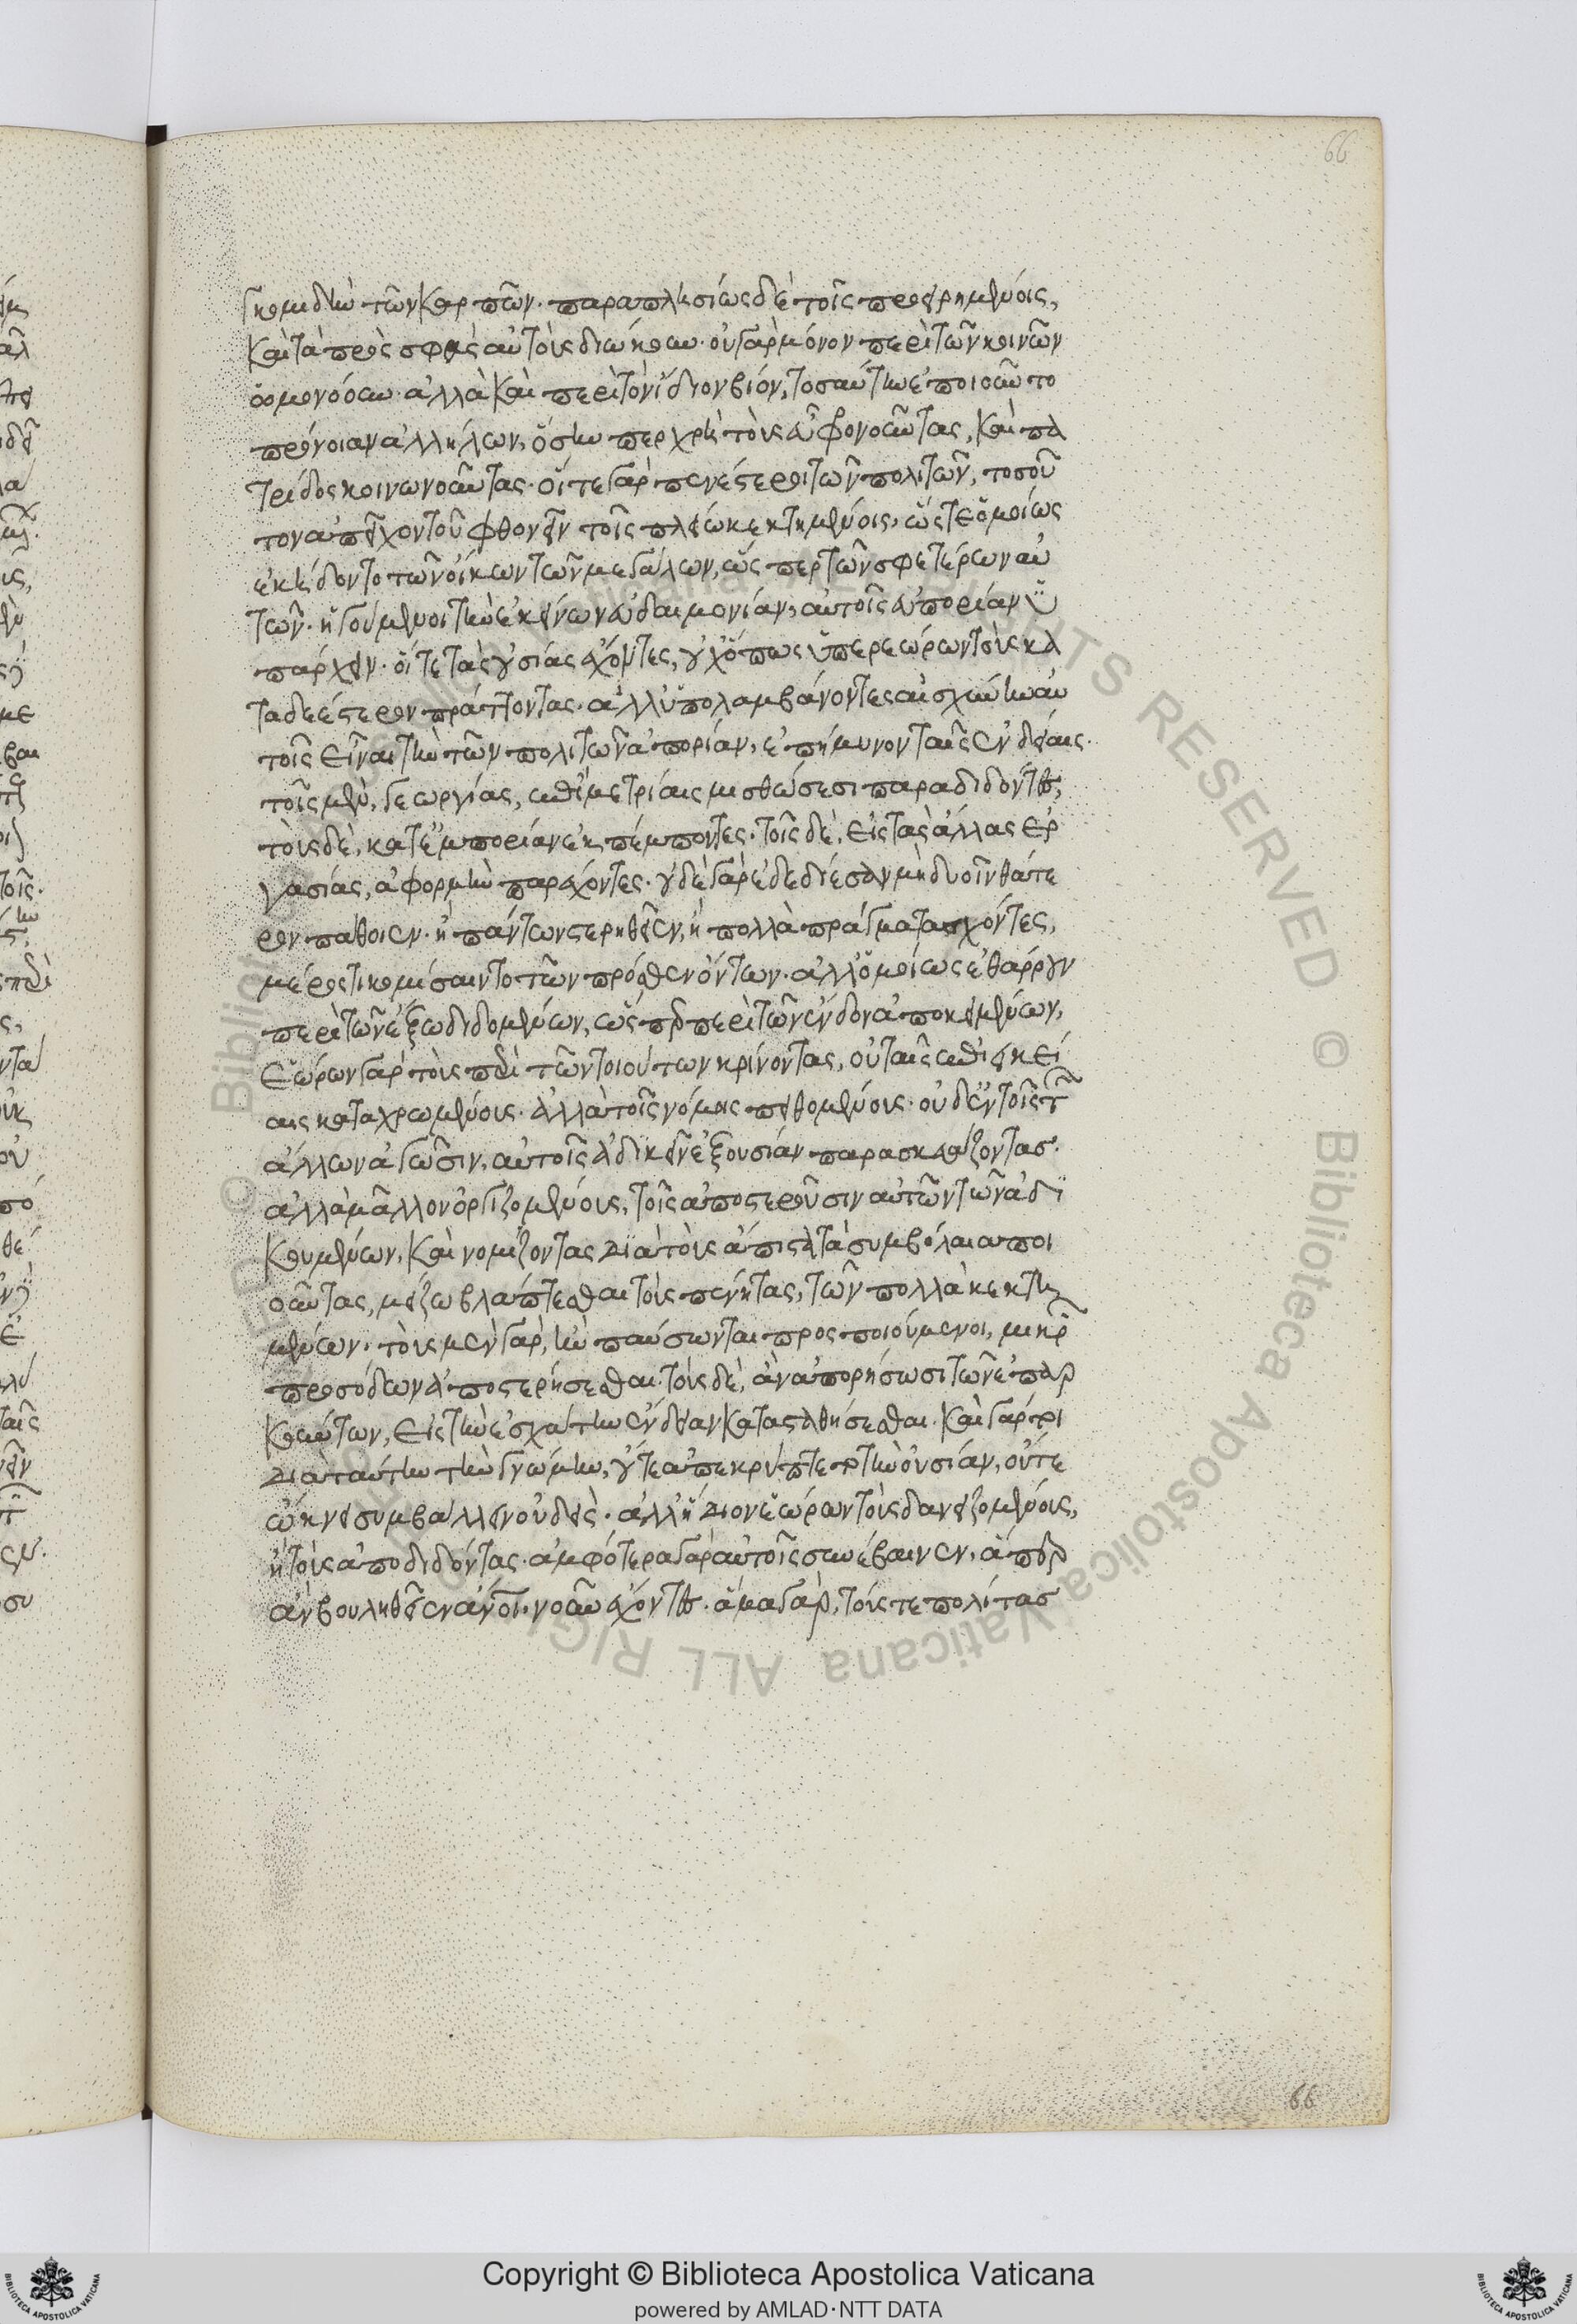 66
συγκομιδὴν τῶν καρπῶν. παραπλησίως δὲ τοῖς προειρημένοις,
καὶ τὰ πρὸς σφᾶς αὐτοὺς διώκουν. οὐ γὰρ μόνον περὶ τῶν κοινῶν
ὁμονόουν. ἀλλὰ καὶ περὶ τὸν ἴδιον βίον, τοσαύτην ἐποιοῦντο
πρόνοιαν ἀλλήλων, ὅσην περ χρὴ τοὺς εὖ φρονοῦντας, καὶ πα
τρίδος κοινωνοῦντας. οἵ τε γὰρ πενέστεροι τῶν πολιτῶν, τοσοῦ
τον ἀπεῖχον τοῦ φθονεῖν τοῖς πλείω κεκτημένοις, ὥστε ὁμοίως
ἐκήδοντο τῶν οἴκων τῶν μεγάλων, ὥσπερ τῶν σφετέρων αὐ
τῶν. ἡγούμενοι τὴν ἐκείνων εὐδαιμονίαν, αὐτοῖς εὐπορίαν ὑ
πάρχειν. οἵ τε τὰς οὐσίας ἔχοντες, οὐχ ὅπως ὑπερεώρων τοὺς κα
ταδεέστερον πράττοντας. ἀλλ' ὑπολαμβάνοντες αἰσχύνην αὐ
τοῖς εἶναι τὴν τῶν πολιτῶν ἀπορίαν, ἐπήμυνον ταῖς ἐνδείαις.
τοῖς μὲν, γεωργίας, ἐπὶ μετρίαις μισθώσεσι παραδιδόντες,
τοὺς δὲ, κατ' ἐμπορίαν ἐκπέμποντες. τοῖς δὲ, εἰς τὰς ἄλλας ἐρ
γασίας, ἀφορμὴν παρέχοντες. οὐδὲ γὰρ ἐδεδίεσαν μὴ δυοῖν θάτε
ρον πάθοιεν. ἢ πάντων στερηθεῖεν, ἢ πολλὰ πράγματα σχόντες,
μέρος τι κομίσαιντο τῶν πρόσθεν ὄντων. ἀλλ' ὁμοίως ἐθάρρουν
περὶ τῶν ἔξω διδομένων, ὥσπερ περὶ τῶν ἔνδον ἀποκειμένων,
ἑώρων γὰρ τοὺς περὶ τῶν τοιούτων κρίνοντας, οὐ ταῖς ἐπιεικεί
αις καταχρωμένους. ἀλλὰ τοῖς νόμοις πειθομένους. οὐδ' ἐν τοῖς τῶν
ἄλλων ἀγῶσιν, αὐτοῖς ἀδικεῖν ἐξουσίαν παρασκευάζοντας.
ἀλλὰ μᾶλλον ὀργιζομένους, τοῖς ἀποστεροῦσιν αὐτῶν τῶν ἀδι
κουμένων, καὶ νομίζοντας διὰ τοὺς ἄπιστα τὰ συμβόλαια ποι
οῦντας, μείζω βλάπτεσθαι τοὺς πένητας, τῶν πολλὰ κεκτη
μένων. τοὺς μὲν γὰρ, ἢν παύσωνται προσποιούμενοι, μικρῶν
προσόδων ἀποστερήσεσθαι. τοὺς δὲ, ἂν ἀπορήσωσι τῶν ἐπαρ
κούντων, εἰς τὴν ἐσχάτην ἔνδειαν καταστήσεσθαι. καὶ γάρ τοι
διὰ ταύτην τὴν γνώμην, οὔτε ἀπεκρύπτετο τὴν οὐσίαν, οὔτε
ὤκνει συμβάλλειν οὐδείς. ἀλλ' ἥδιον ἑώρων τοὺς δανειζομένους,
ἢ τοὺς ἀποδιδόντας. ἀμφότερα γὰρ αὐτοῖς συνέβαινεν. ἅπερ
ἂν βουληθεῖεν ἄνθρωποι. νοῦν ἔχοντες. ἅμα γὰρ, τούς τε πολίτας
66
Copyright © Biblioteca Apostolica Vaticana
powered by AMLAD·NTT DATA